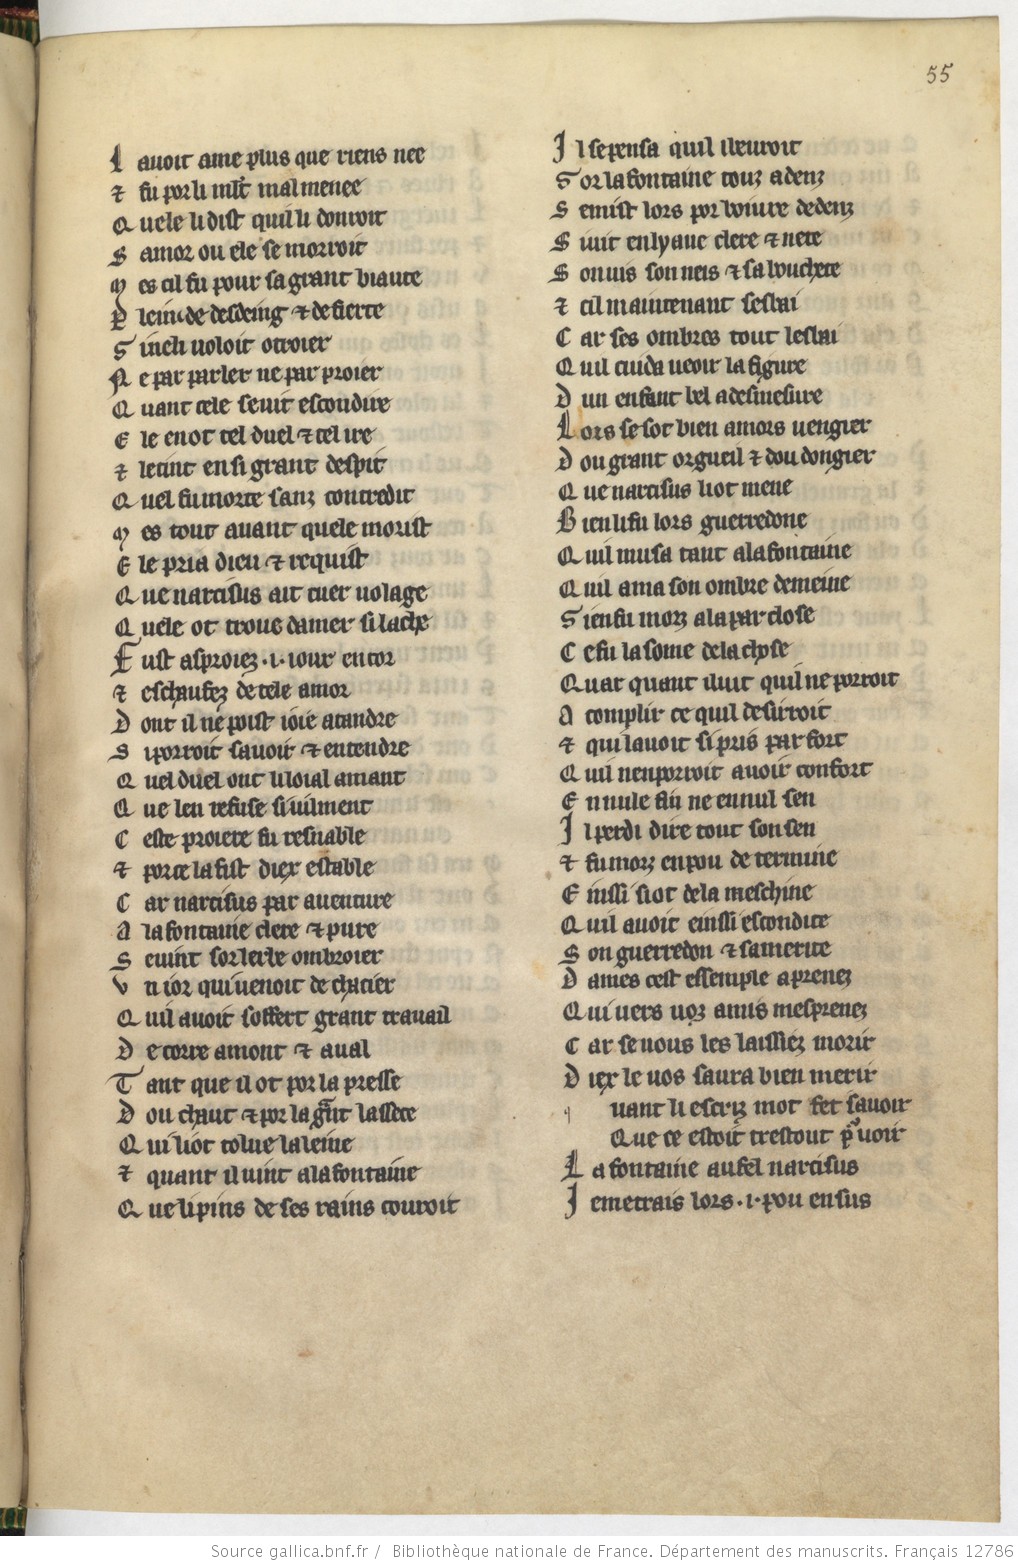 55
L avoit ame plus que riens nee
⁊ fu por li ml̃t mal menee
Q uele li dist quil li donroit
S amor ou ele se morroit
M es cil fu pour sa grant biaute
P leins de desdeing ⁊ de fierte
S i neli voloit otroier
N e par parler ne par proier
Q uant cele sevit escondire
E le en ot tel duel ⁊ tel ire
⁊ le tint en si grant despit
Q uel fu morte sanz contredit
M es tout avant quele morist
E le pria dieu ⁊ requist
Q ue narcisus ait cuer volage
Q uele ot trove damer si lache
F ust asproiez .i. iour encor
⁊ eschaufez de tele amor
D ont il ne poist ioie atandre
S i porroit savoir ⁊ entendre
Q uel duel ont li loial amant
Q ue len refuse si vilment
C este proiere fu resnable
⁊ por ce la fist diex estable
C ar narcisus par aventure
A la fontaine clere ⁊ pure
S e vint sor lerbe ombroier
V n ior qui venoit de chacier
Q uil avoit soffert grant travail
D e corre amont ⁊ aval
T ant que il ot por la presse
D ou chaut ⁊ por la gᵃnt lassece
Q ui li ot tolue la leine
⁊ quant il vint a la fontaine
Q ue li pins de ses rains covroit
I l se pensa quil i bevroit
S or la fontaine touz adenz
S e mist lors por boivre dedenz
S i vit en lyaue clere ⁊ nete
S on vis son neis ⁊ sa bouchete
⁊ cil maintenant sesbai
C ar ses ombres tout lesbai
Q uil cuida veoir la figure
D un enfant bel a desmesure
L ors se sot bien amors vengier
D ou grant orgueil ⁊ dou dongier
Q ue narcisus li ot mene
B ien li fu lors guerredone
Q uil musa tant a la fontaine
Q uil ama son ombre demeine
S i en fu morz a la par close
C e fu la some de la chose
Q uar quant il vit quil ne porroit
A complir ce quil desirroit
⁊ qui lavoit si pris par fort
Q uil nen porroit avoir confort
E n nule fin ne en nul sen
I l perdi dire tout son sen
⁊ fu morz en pou de termine
E inssi si ot de la meschine
Q uil avoit einssi escondite
S on guerredon ⁊ sa merite
D ames cest essemple aprenez
Q ui vers voz amis mesprenez
C ar se vous les laissiez morir
D iex le vos saura bien merir
q uant li escriz mot fet savoir
Que ce estoit trestout pᵒ voir
L a fontaine au bel narcisus
I e me trais lors .i. pou en sus
Source gallica.bnf.fr / Bibliothèque nationale de France. Département des manuscrits. Français 12786